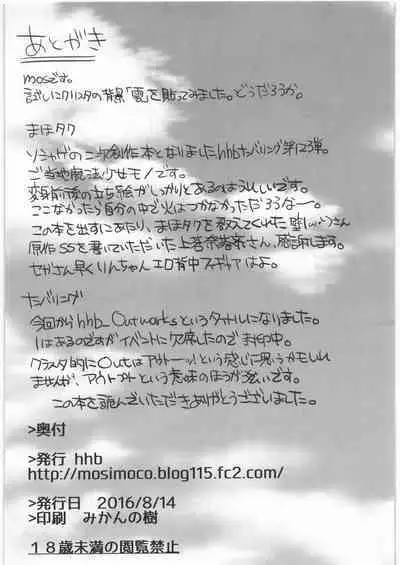 あとがき
mosです。
試しにクリスタの背景「雲」を貼ってみました。どうだろうか。
まほタク
ソシャゲの二次創作本となりましたhhbナンバリング第12弾。
ご当地魔法少女モノです。
変身前後の立ち絵がしっかりとあるのはうれしいです。
ここなかったら自分の中で火はつかなかっただろうな〜。
この本を出すにあたり、まほタクを教えてくれた さん
原作SSを書いていただいた上 さん、感謝します。
セガさん早くりんちゃん エロ背中フィギュアはよ。
ナンバリング
今回からhhb_Outworksというタイトルになりました。
1はあるのですがイベントに欠席したので封印中。
クラスタ的にOutはアウトーッ!という感じに思うかもしれ
ませんが、アウトプットという意味のほうが強いです。
この本を読んでいただきありがとうございました。
>奥付
>発行 hhb
http://mosimoco.blog115.fc2.com/
>発行日 2016/8/14
>印刷 みかんの樹
18歳未満の閲覧禁止